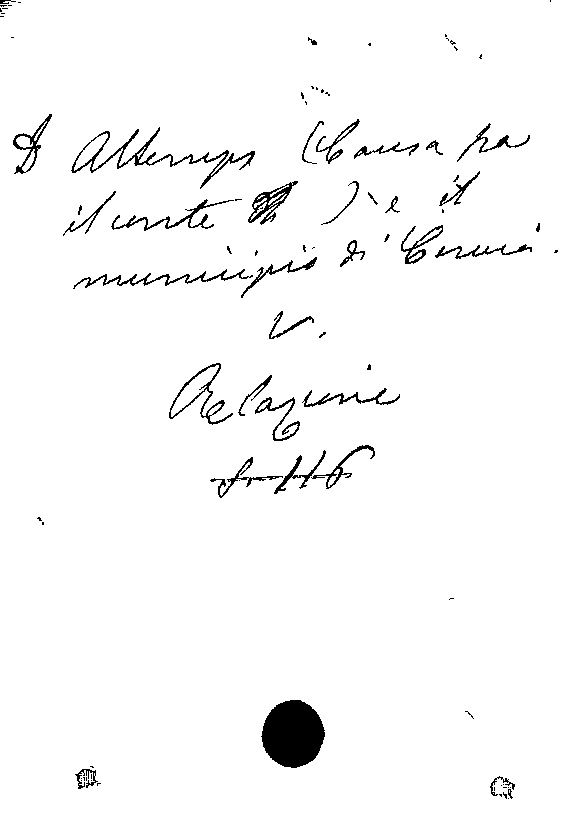 D Altemps (Causa fra
il conte ) e il
municipio di Cervia.
V.
Relazione
f. 116